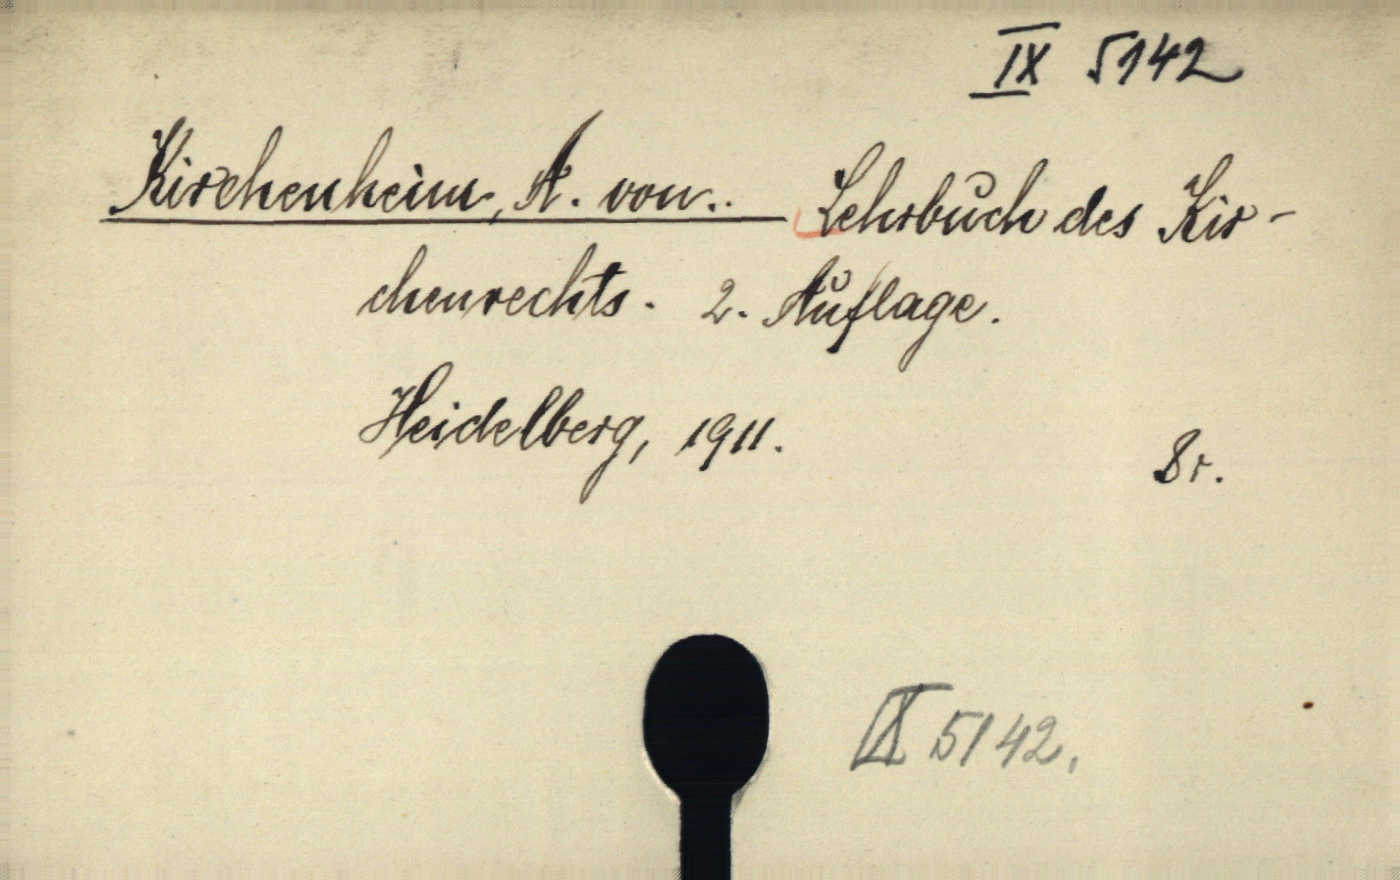 IX 5142
Kirchenheim, A. von.. Lehrbuch des Kir-
chenrechts. 2. Auflage.
Heidelberg, 1911.
8r.
IX 5142.